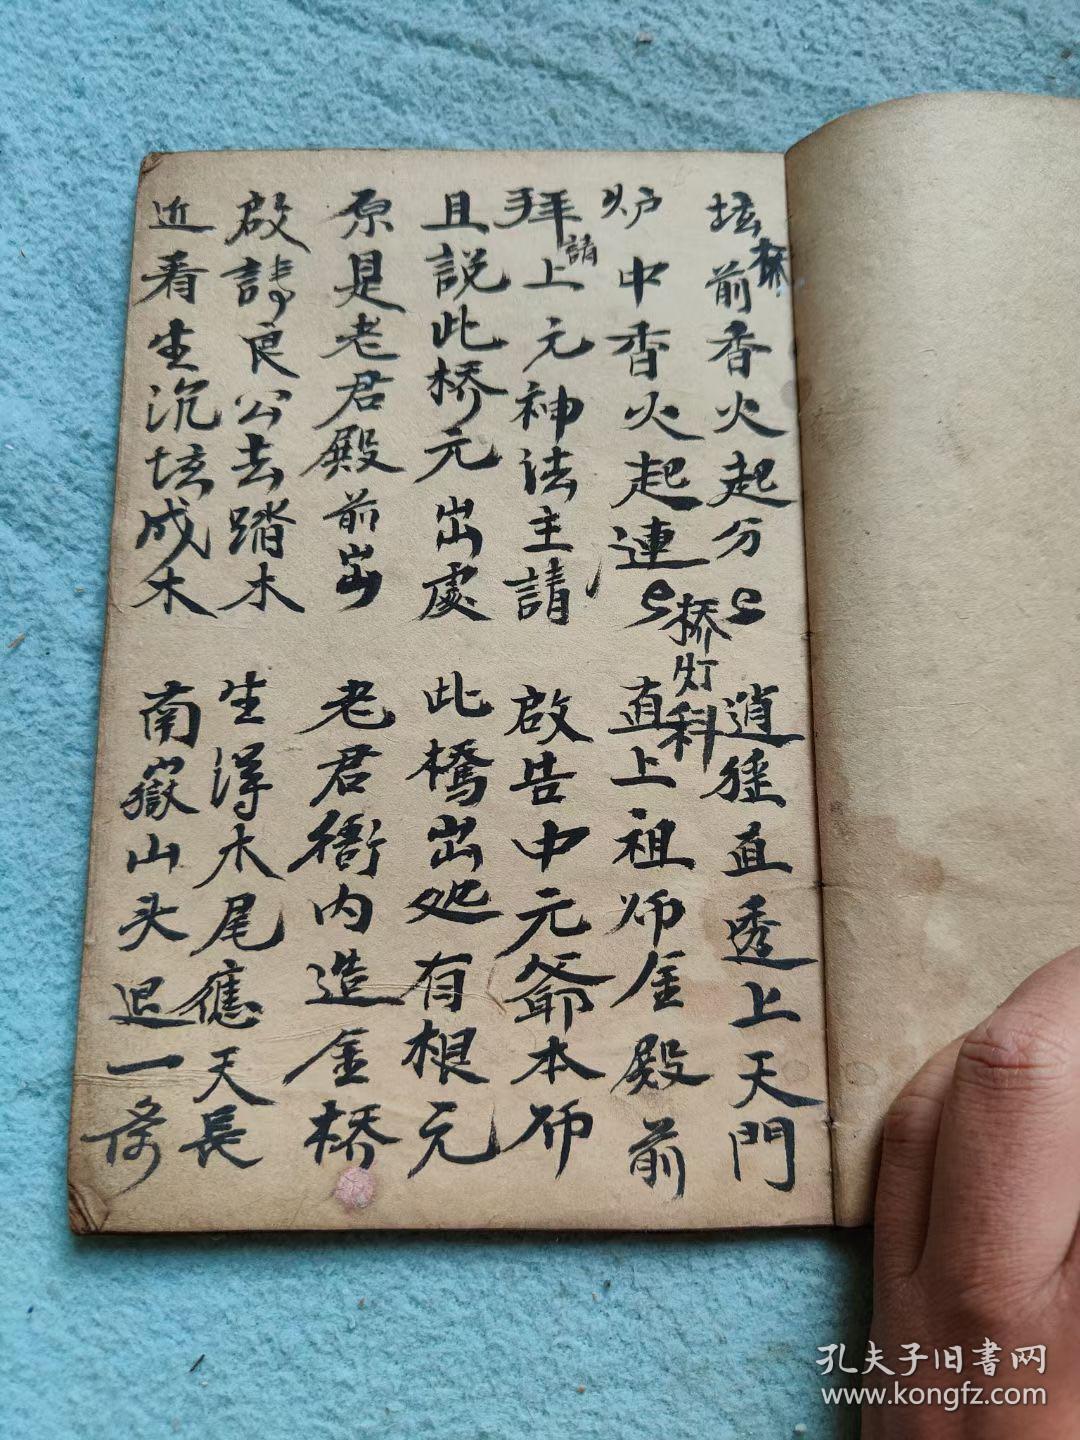 坛前香火起分〻 逍遥直透上天門
桥
桥灯科
炉中香火起連〻 直上祖师金殿前
拜上元神法主請 啟告中元爺本师
請
且説此桥元出處 此橋出处有根元
原是老君殿前出 老君衙内造金桥
啟請良公去踏木 生得木尾應天長
近看生沉坛成木 南嶽山头退一条
孔夫子旧書网
www.kongfz.com